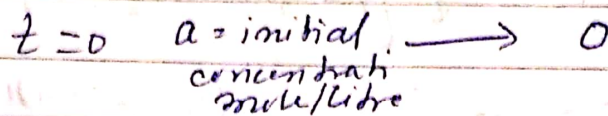 t=0 a = initial ⟶ 0
concentrati
mole/litre